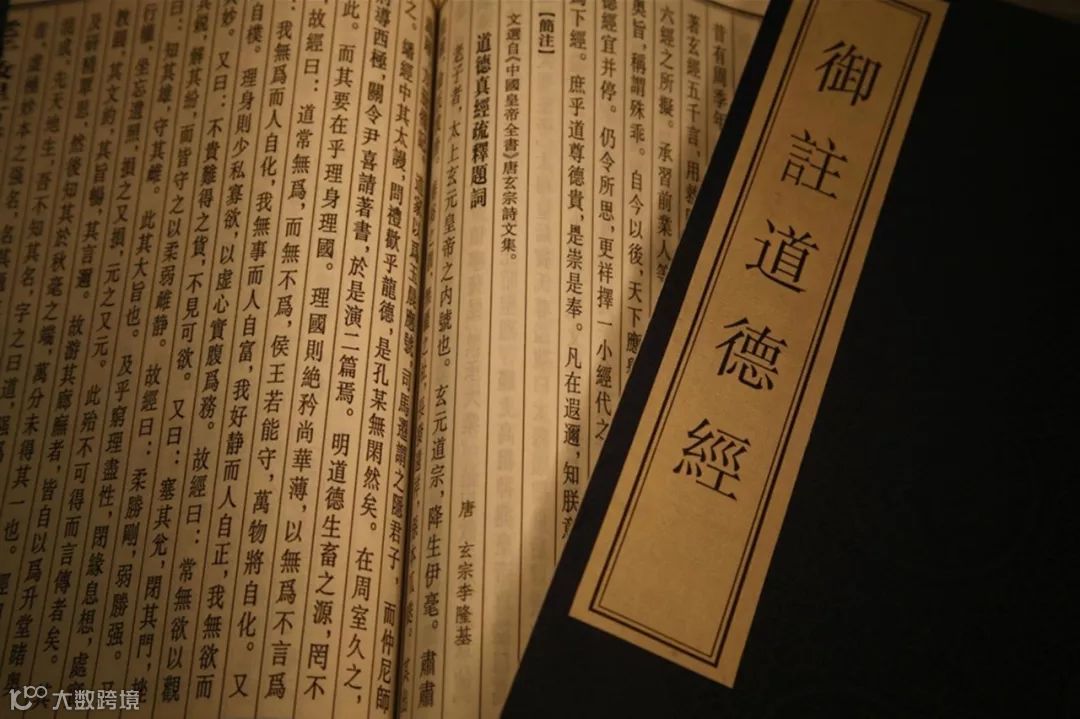 御註道德經
昔有周季年
著玄經五千言，用
六經之所擬。承習前業人等
奧旨，稱謂殊乖。自今以後，天下應
德經宜并停。仍令所思，更祥擇一小經代之
爲下經。庶乎道尊德貴，是崇是奉。凡在遐邇，知朕意
【簡注】
文選自《中國皇帝全書》唐玄宗詩文集。
道德真經疏釋題詞
唐 玄宗李隆基
老子者，太上玄元皇帝之内號也。玄元道宗，降生伊亳。肅肅
之。
經中其太
問禮歎乎龍德，是孔某無閑然矣。在周室久之，
將導西極，關令尹喜請著書，於是演二篇焉。明道德生畜之源，罔不
此。而其要在乎理身理國。理國則絶矜尚華薄，以無爲不言爲
故經曰：道常無爲，而無不爲，侯王若能守，萬物將自化。又
我無爲而人自化，我無事而人自富，我好静而人自正，我無欲而
自樸。理身則少私寡欲，以虛心實腹爲務。故經曰：常無欲以觀
其妙。又曰：不貴難得之貨，不見可欲。又曰：塞其兌，閉其門，挫
其銳，解其紛，而皆守之以柔弱雌静。故經曰：柔勝剛，弱勝强。又
曰：知其雄，守其雌。此其大旨也。及乎窮理盡性，閉緣息想，處
行權，坐忘遺照，損之又損，元之又元。此殆不可得而言傳者矣。
教圓，其文約，其旨暢，其言邇。故游其廊廡者，皆自以爲升堂睹奧
及研精覃思，然後知其於秋毫之端，萬分未得其一也。經曰
混成，先天地生，吾不知其名，字之曰道，强爲
大数跨境